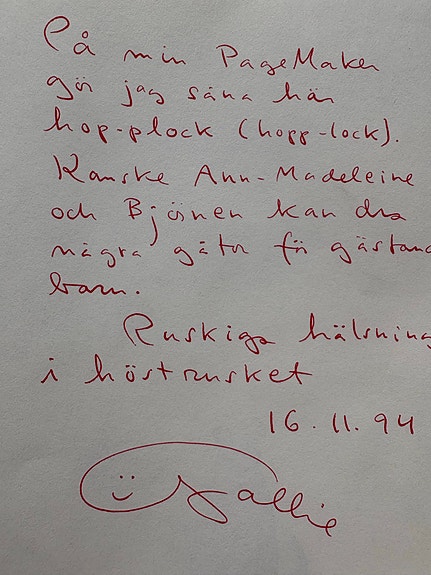 På min PageMaker
gör jag såna här
hop-plock (hopp-lock).
Kanske Ann-Madeleine
och Björnen kan dra
några gåtor för gästand
barn.
Ruskiga hälsning
i höstrusket
16.11.94